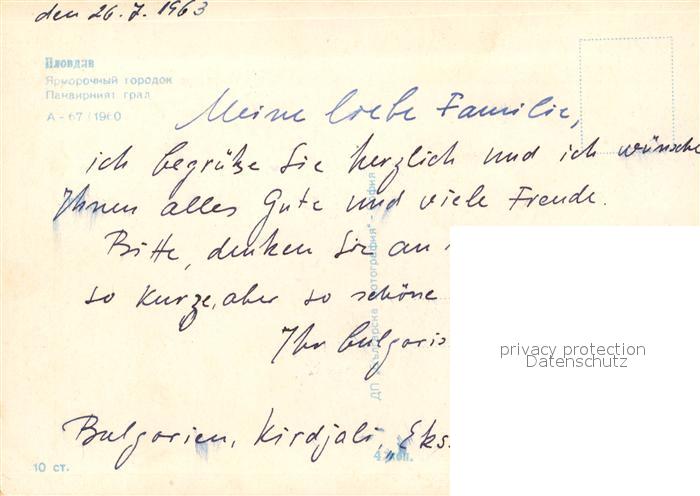 den 26.7.1963
Пловдив
Ярморочный городок
Панаирният град
А - 67 / 1960
Meine liebe Familie,
ich begrüße Sie herzlich und ich wünsche
Ihnen alles Gute und viele Freude.
Bitte, denken Sie an
so kurze, aber so schöne
Ihr bulgaris
privacy protection
Datenschutz
Bulgarien, Kirdjali, „Eks.
10 ст.
ДП „Българска фотография" - София